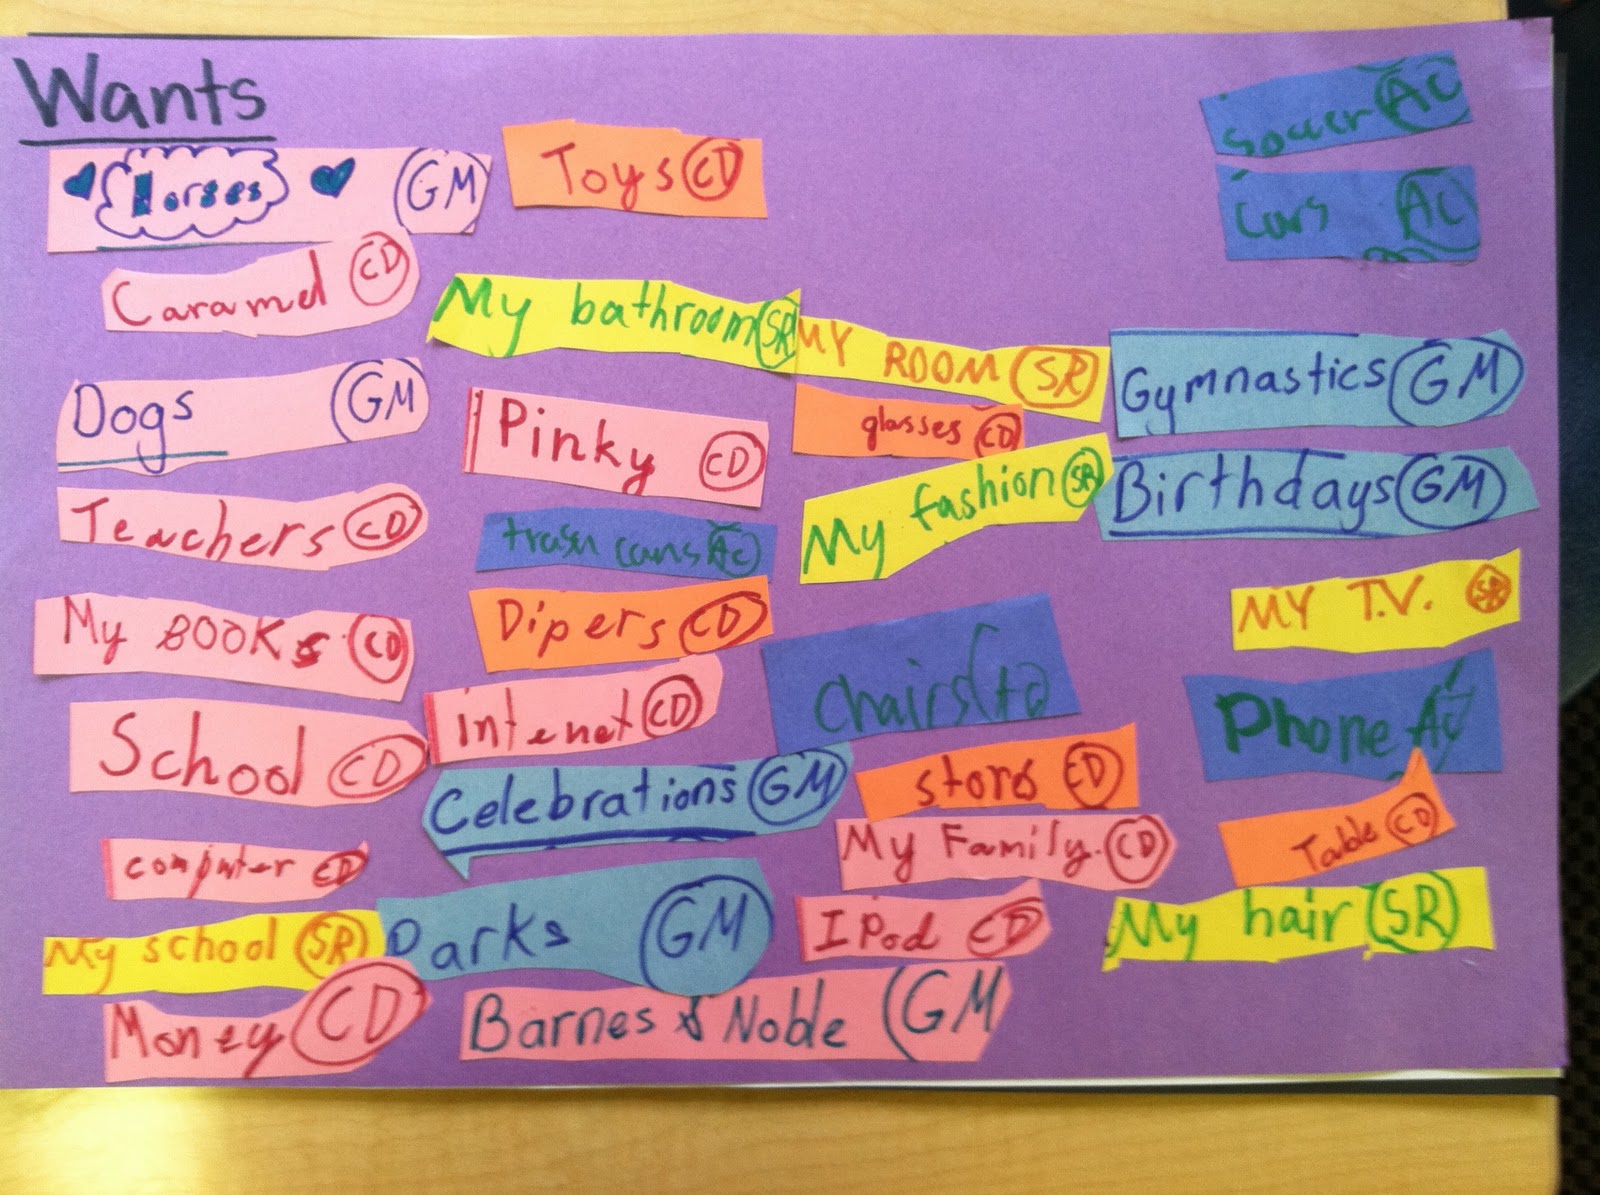 Wants
Horses GM
Toys CD
Soccer AC
Cars AC
Caramel CD
My bathroom SR
MY ROOM SR
Gymnastics GM
Dogs GM
Pinky CD
glasses CD
My fashion SR
Birthdays GM
Teachers CD
trash cans AC
MY T.V. SR
My BOOKs CD
Dipers CD
Chairs
Phone AC
School CD
internet CD
Celebrations GM
stors CD
Table CD
computer CD
My Family. CD
My school SR
Parks GM
IPod CD
My hair SR
Money CD
Barnes & Noble GM